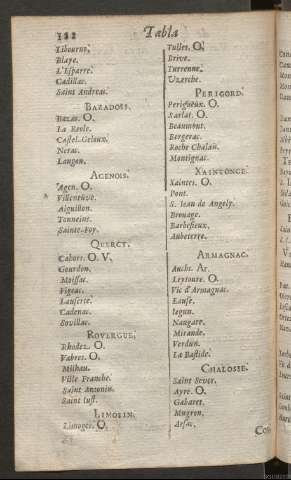 132
Tabla
Libourne.
Blaye.
L'Esparre.
Cadillac.
Saint Andreas.
BAZADOIS.
Bazas. O.
La Reole.
Castel-Geloux.
Nerac.
Langon.
AGENOIS.
Agen. O.
Villeneuve.
Aiguillon.
Tonneins.
Sainte-Foy.
QUERCY.
Cahors. O. V.
Gourdon.
Moissac.
Figeac.
Lauserte.
Cadenac.
Sovillac.
ROVERGUE.
Rhodez. O.
Vabres. O.
Milhau.
Ville Franche.
Saint Antonin.
Saint Iust.
LIMOSIN.
Limoges. O.
Tulles. O.
Brive.
Turenne.
Vzarche.
PERIGORD.
Perigueux. O.
Sarlat. O.
Beaumont.
Bergerac.
Roche Chalais.
Montignac.
XAINTONGE.
Xaintes. O.
Pont.
S. Iean de Angely.
Brouage.
Barbesieux.
Aubeterre.
ARMAGNAC.
Auchs. Ar.
Leytoure. O.
Vic d'Armagnac.
Lause.
Iegun.
Naugare.
Mirande.
Verdun.
La Bastide.
CHALOSSE.
Saint Sever.
Ayre. O.
Gabaret.
Mugron.
Arsac.